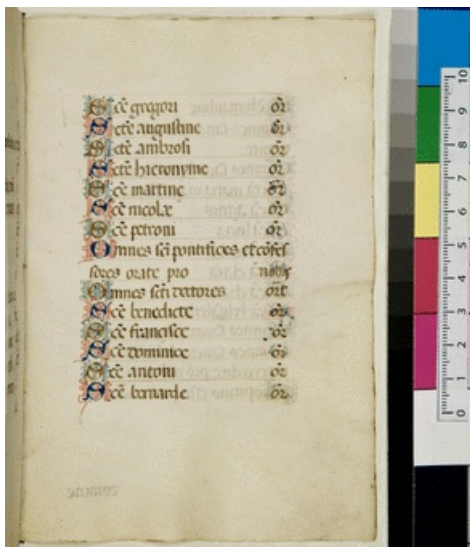 Sc̄e gregori or̄
Sctē augustine or̄
Sc̄e ambrosi or̄
Sctē hieronyme or̄
Sc̄e martine or̄
Sc̄e nicolæ or̄
Sc̄e petroni or̄
Omnes sc̄i pontifices et cōfes
sores orate pro nobis
Omnes sc̄ti doctores ort̄
Sc̄e benedicte or̄
Sc̄e francisce or̄
Sc̄e dominice or̄
Sc̄e antoni or̄
Sc̄e bernarde or̄
0 1 2 3 4 5 6 7 8 9 10